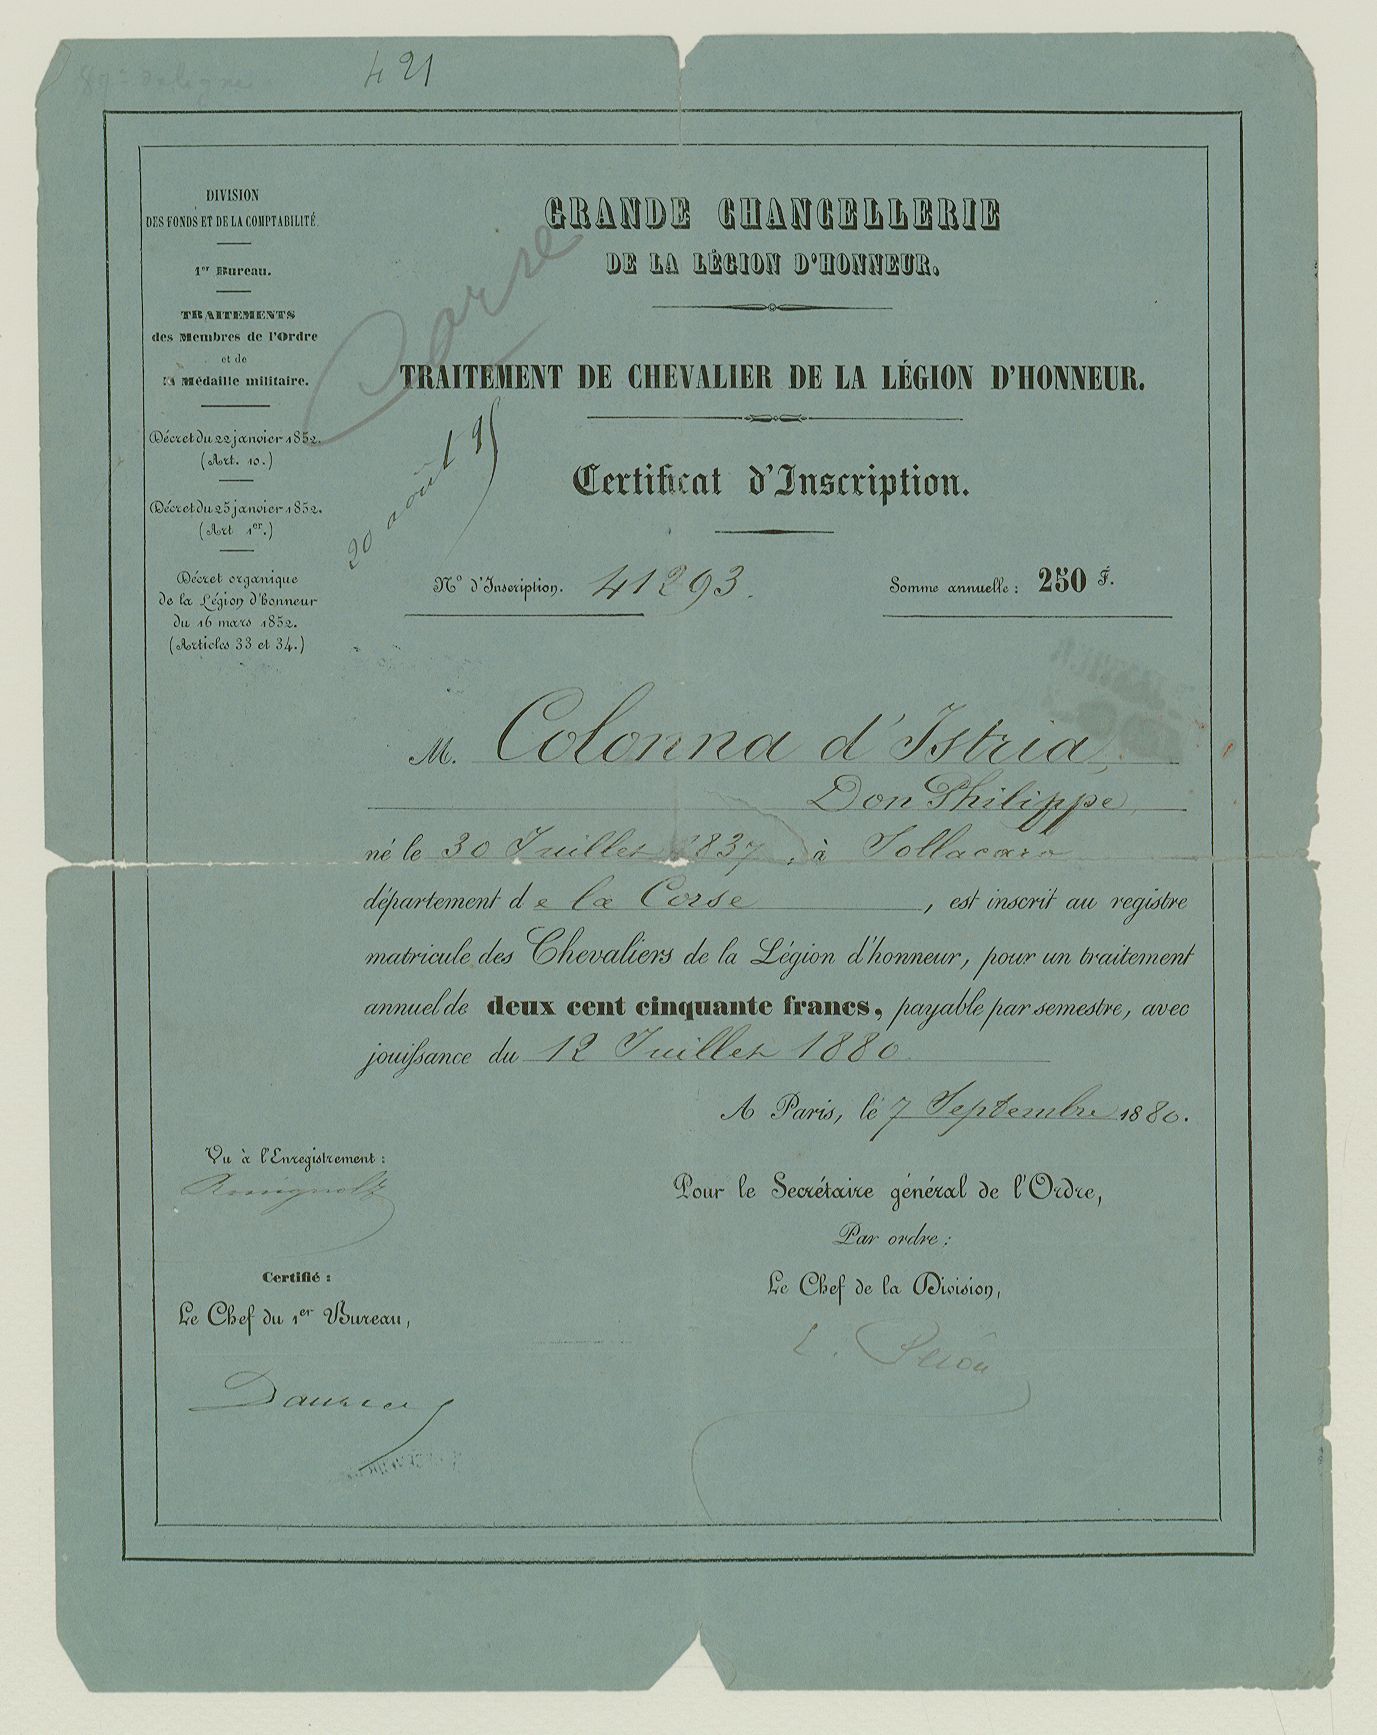 421
DIVISION
DES FONDS ET DE LA COMPTABILITÉ
1er Bureau.
TRAITEMENTS
des Membres de l'Ordre
et de
la Médaille militaire.
Décret du 22 janvier 1852.
(Art. 10.)
Décret du 25 janvier 1852.
(Art 1er.)
Décret organique
de la Légion d'honneur
du 16 mars 1852.
(Articles 33 et 34.)
GRANDE CHANCELLERIE
DE LA LÉGION D'HONNEUR.
Corse
TRAITEMENT DE CHEVALIER DE LA LÉGION D'HONNEUR.
20 août 95
Certificat d'Inscription.
N° d'Inscription. 41293.
Somme annuelle : 250 F.
M. Colonna d'Istria,
Don Philippe
né le 30 Juillet 1837, à Sollacaro
département de la Corse, est inscrit au registre
matricule des Chevaliers de la Légion d'honneur, pour un traitement
annuel de deux cent cinquante francs, payable par semestre, avec
jouissance du 12 Juillet 1880.
A Paris, le 7 Septembre 1880.
Vu à l'Enregistrement :
Pour le Secrétaire général de l'Ordre,
Par ordre :
Le Chef de la Division,
Certifié :
Le Chef du 1er Bureau,